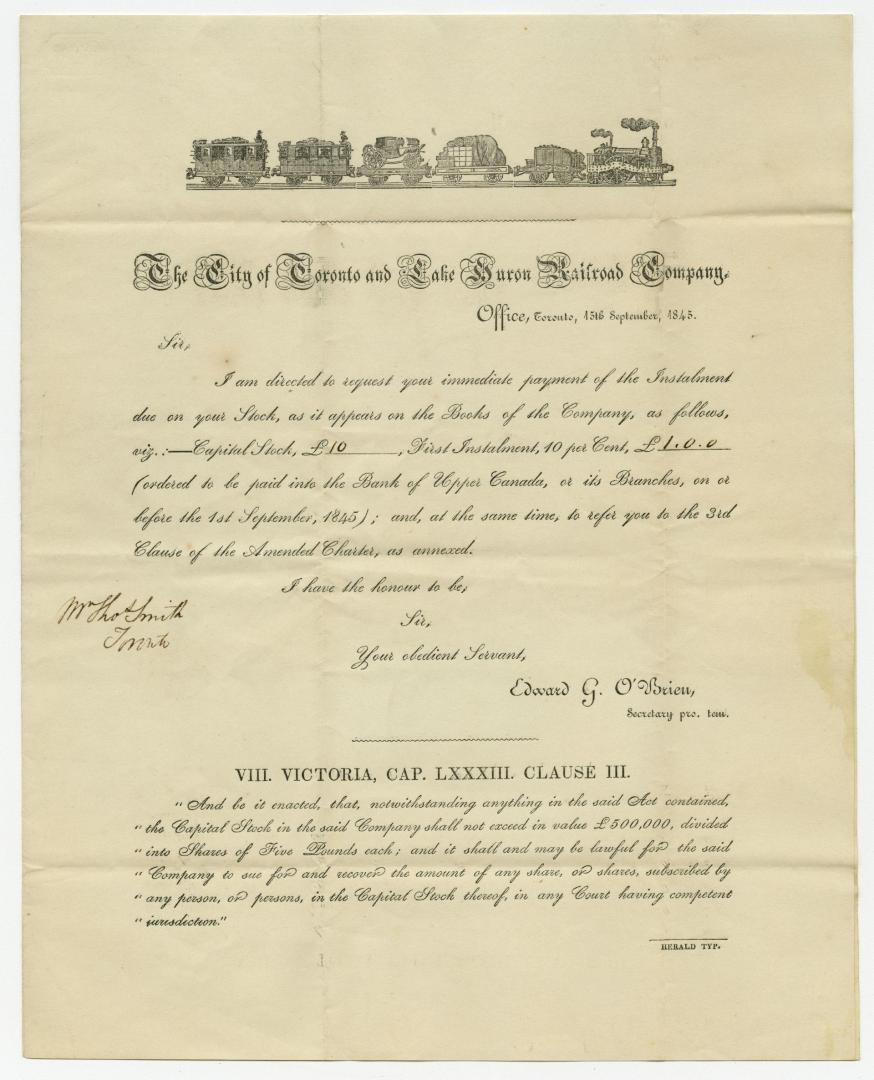 The City of Toronto and Lake Huron Railroad Company.
Office, Toronto, 15th September, 1845.
Sir,
I am directed to request your immediate payment of the Instalment
due on your Stock, as it appears on the Books of the Company, as follows,
viz.:—Capital Stock, £10 , First Instalment, 10 per Cent, £1.0.0
(ordered to be paid into the Bank of Upper Canada, or its Branches, on or
before the 1st September, 1845); and, at the same time, to refer you to the 3rd
Clause of the Amended Charter, as annexed.
I have the honour to be,
Sir,
Mr Thos Smith
Toronto
Your obedient Servant,
Edward G. O'Brien,
Secretary pro. tem.
VIII. VICTORIA, CAP. LXXXIII. CLAUSE III.
"And be it enacted, that, notwithstanding anything in the said Act contained,
"the Capital Stock in the said Company shall not exceed in value £500,000, divided
"into Shares of Five Pounds each; and it shall and may be lawful for the said
"Company to sue for and recover the amount of any share, or shares, subscribed by
"any person, or persons, in the Capital Stock thereof, in any Court having competent
"jurisdiction."
HERALD TYP.